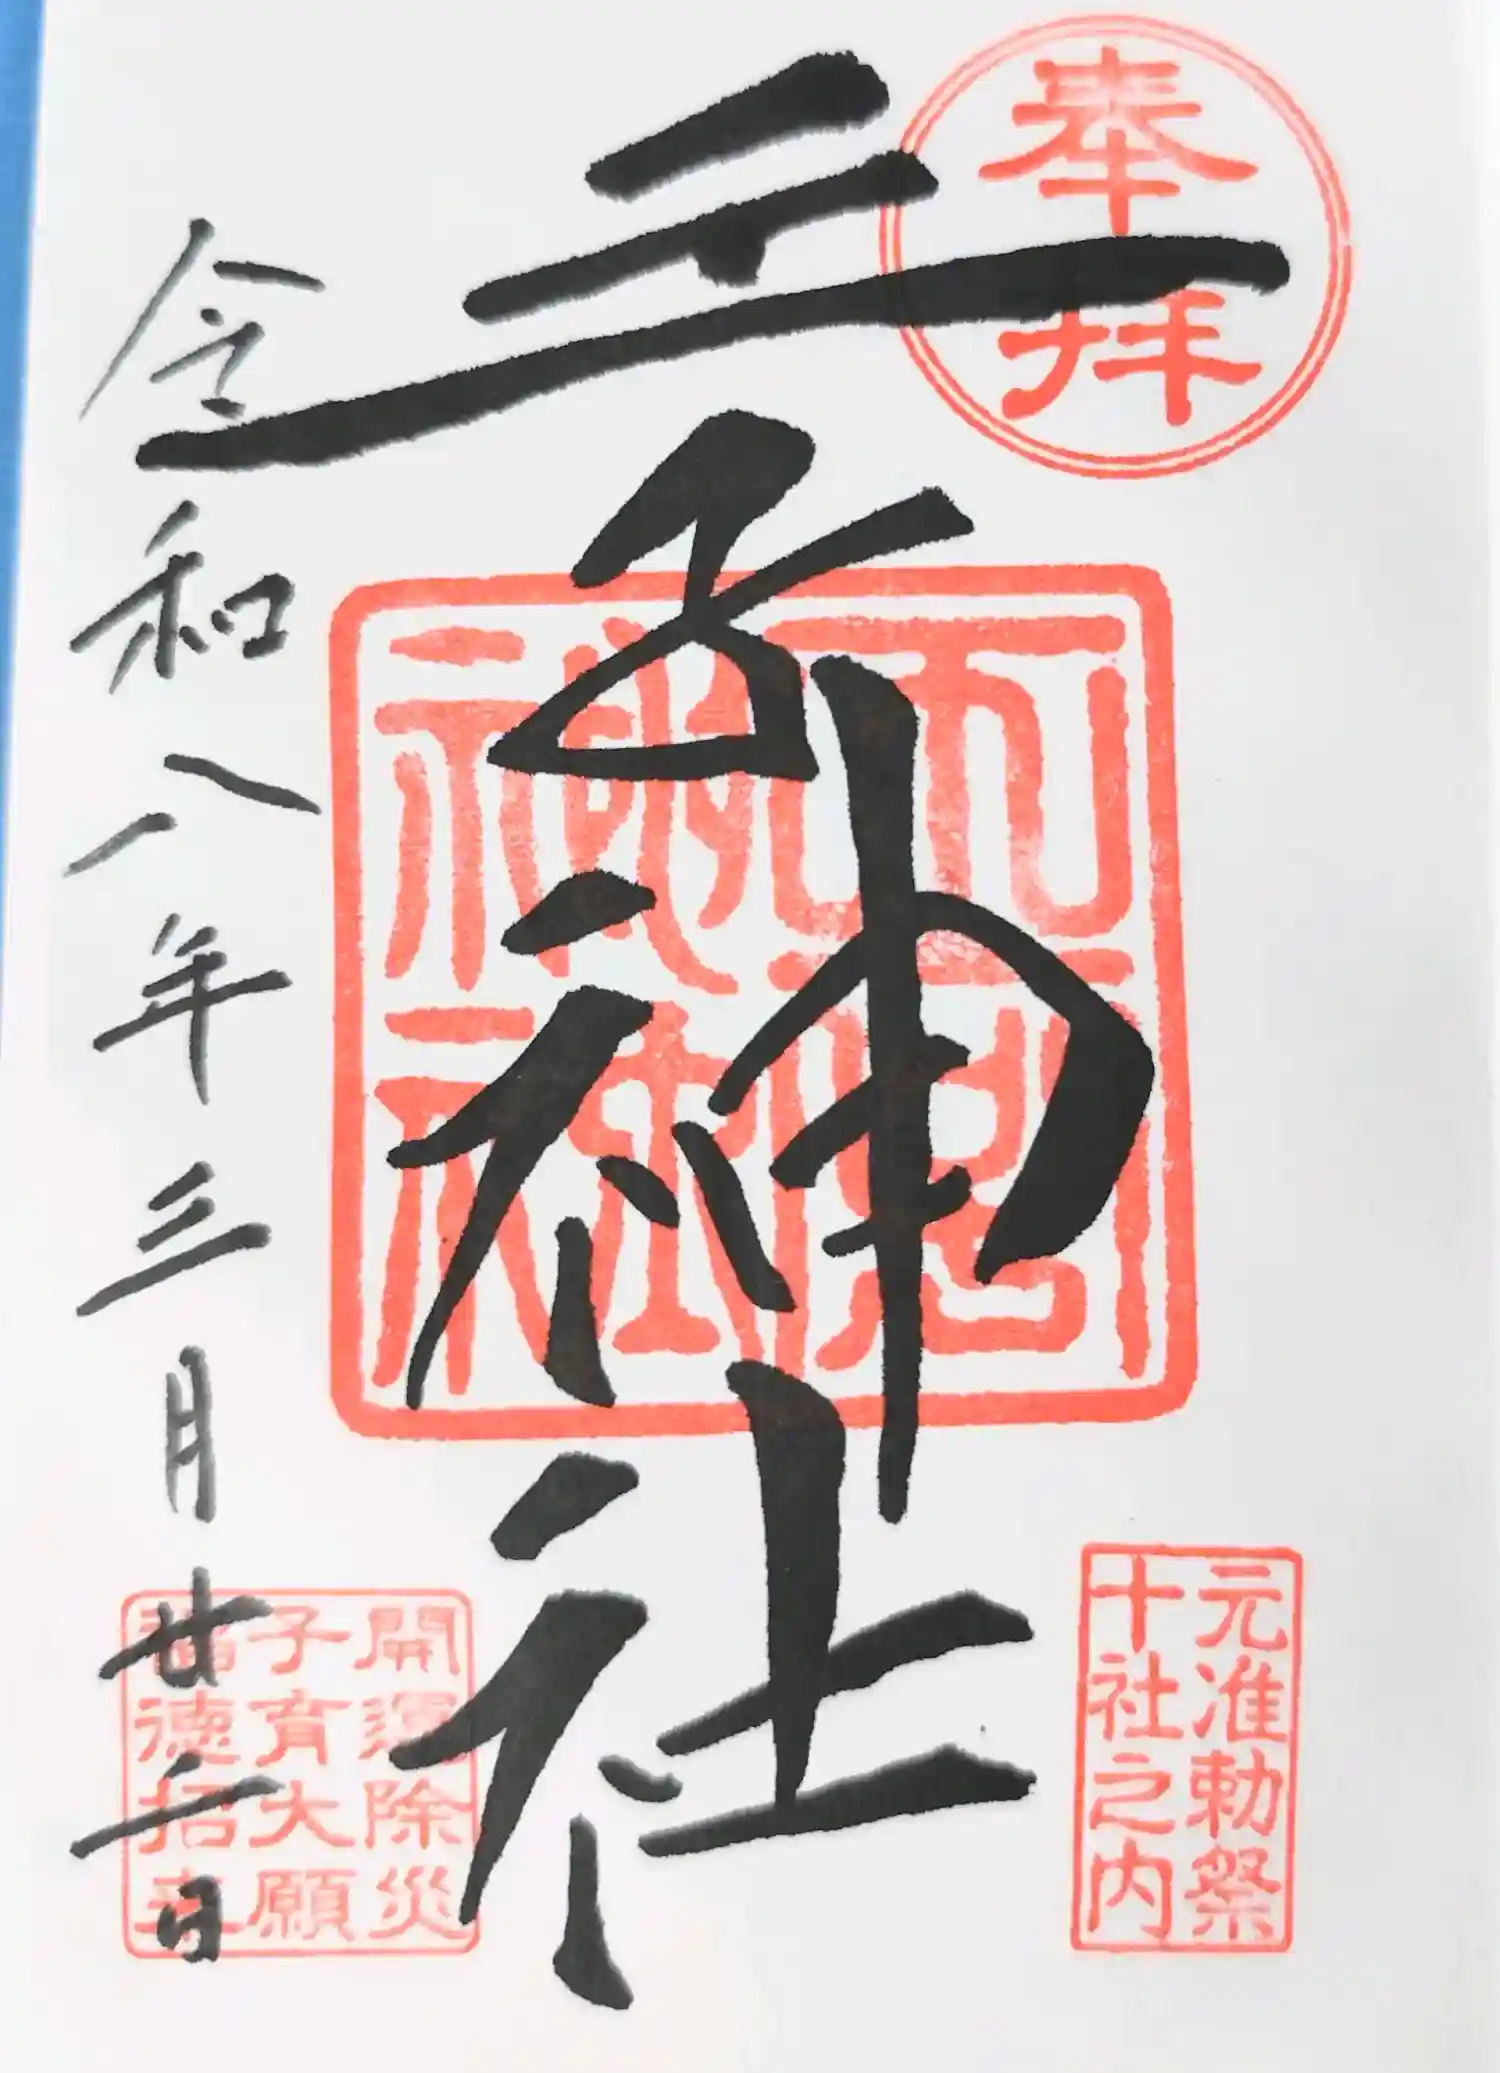 奉拝
王子神社
元准勅祭
十社之内
令和八年三月廿二日
開運除災
子育大願
福徳招来